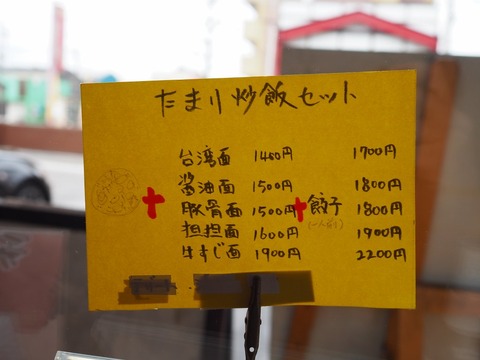 たまり炒飯セット
台湾面 1480円 1700円
醤油面 1500円 1800円
+ 豚骨面 1500円 + 餃子 1800円
担担面 1600円 1900円
牛すじ面 1900円 2200円